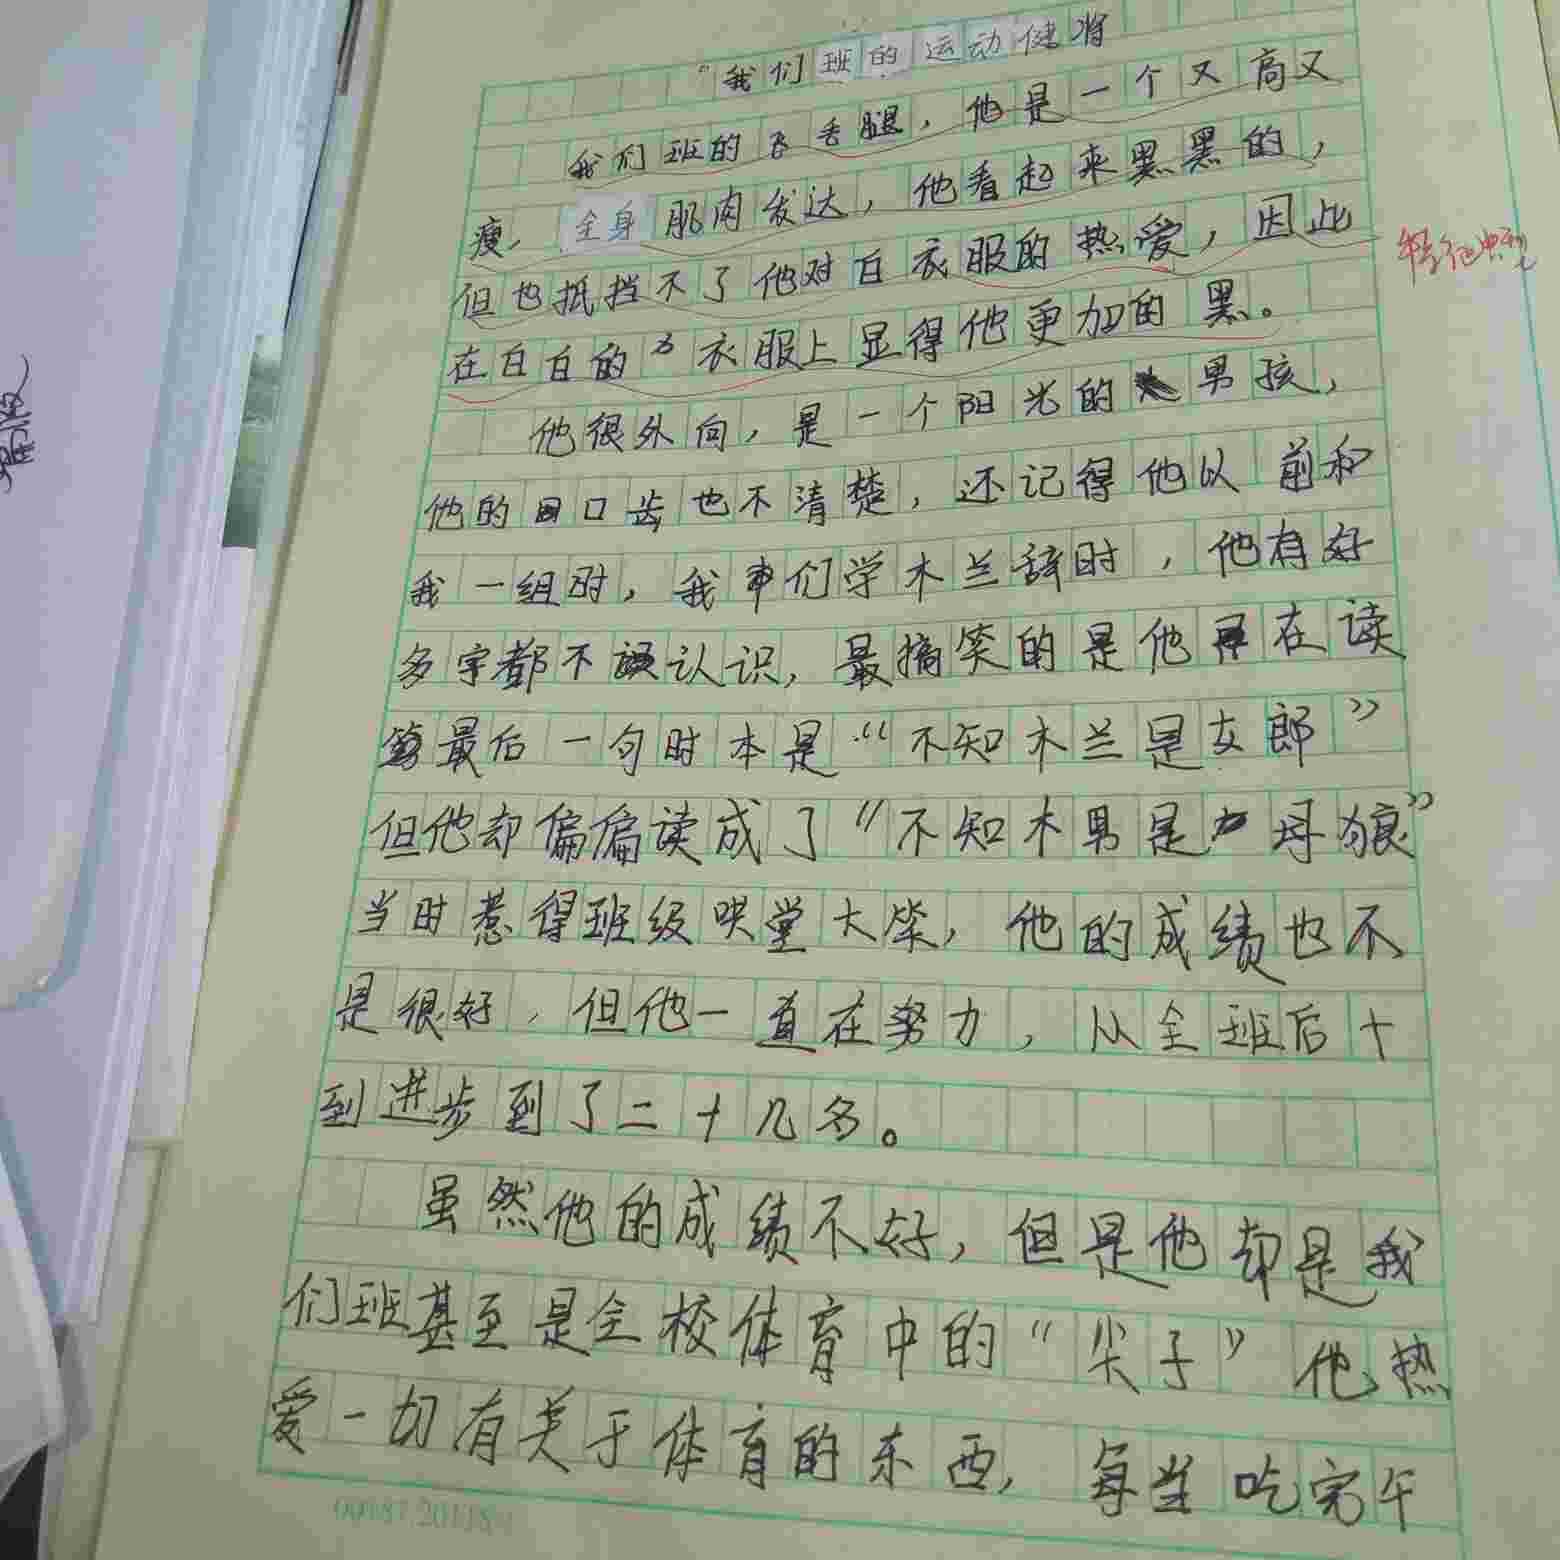 “我们班的运动健将
我们班的飞毛腿，他是一个又高又
瘦，全身肌肉发达，他看起来黑黑的，
但也抵挡不了他对白衣服的热爱，因此
在白白的衣服上显得他更加的黑。
他很外向，是一个阳光的男孩，
他的口齿也不清楚，还记得他以前和
我一组时，我们学木兰辞时，他有好
多字都不认识，最搞笑的是他在读
最后一句时本是“不知木兰是女郎”
但他却偏偏读成了“不知木男是母狼”
当时惹得班级哄堂大笑，他的成绩也不
是很好，但他一直在努力，从全班后十
到进步到了二十几名。
虽然他的成绩不好，但是他却是我
们班甚至是全校体育中的“尖子”他热
爱一切有关于体育的东西，每当吃完午